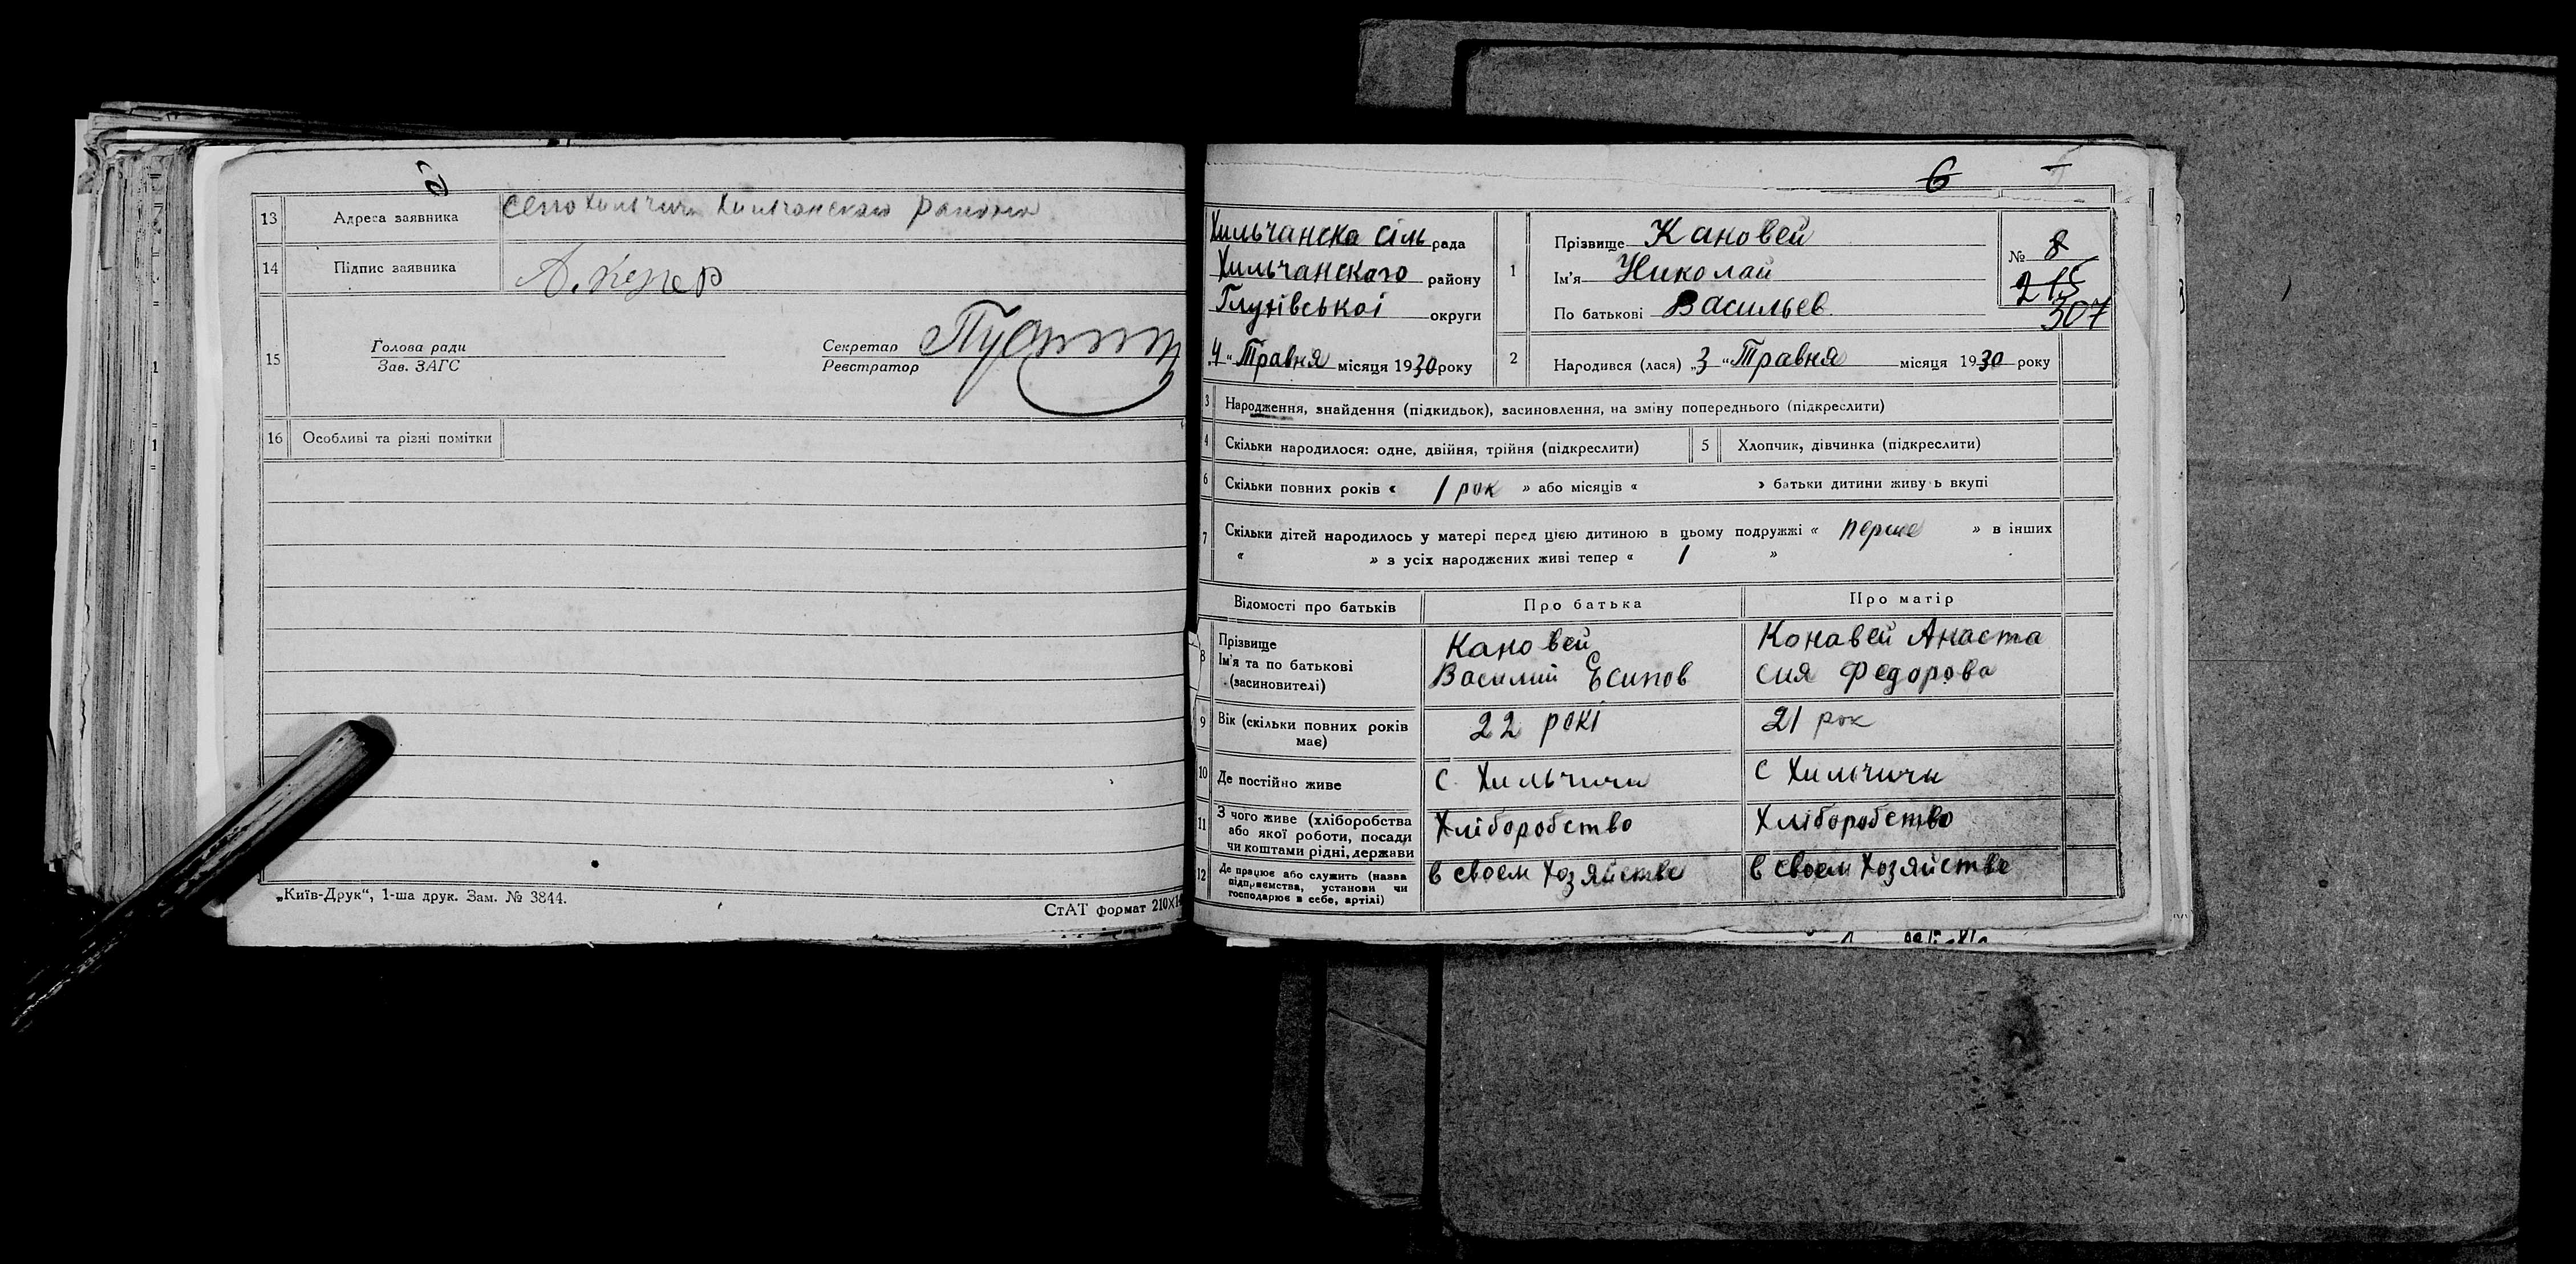 6
13 Адреса заявника село Хильчичи Хильчанского района
14 Підпис заявника А.
15 Голова ради
Зав. ЗАГС
Секретар
Реєстратор
16 Особливі та різні помітки
„Київ-Друк“, 1-ша друк. Зам. № 3844.
СтАТ формат 210×1
6
Хильчанска сіль рада
Хильчанского району
Глухівської округи
4 „ Травня місяця 1930 року
1 Прізвище Кановей
Ім'я Николай
По батькові Васильев
№ 8
215
307
2 Народився (лася) „3 “ Травня місяця 1930 року
3 Народження, знайдення (підкидьок), засиновлення, на зміну попереднього (підкреслити)
4 Скільки народилося: одне, двійня, трійня (підкреслити) 5 Хлопчик, дівчинка (підкреслити)
6 Скільки повних років « 1 рок » або місяців « » батьки дитини живу ь вкупі
7 Скільки дітей народилось у матері перед цією дитиною в цьому подружжі « перше » в інших
« » з усіх народжених живі тепер « 1 »
Відомості про батьків Про батька Про матір
8 Прізвище
Ім'я та по батькові
(засиновителі)
Кановей
Василий Есипов
Конавей Анаста
сия Федорова
9 Вік (скільки повних років
має)
22 рокі
21 рок
10 Де постійно живе с. Хильчичи с Хильчичи
11 З чого живе (хліборобства
або якої роботи, посади
чи коштами рідні, держави
Хліборобство
Хліборобство
12 Де працює або служить (назва
підприємства, установи чи
господарює в себе, артілі)
в своем хозяйстве
в своем хозяйстве